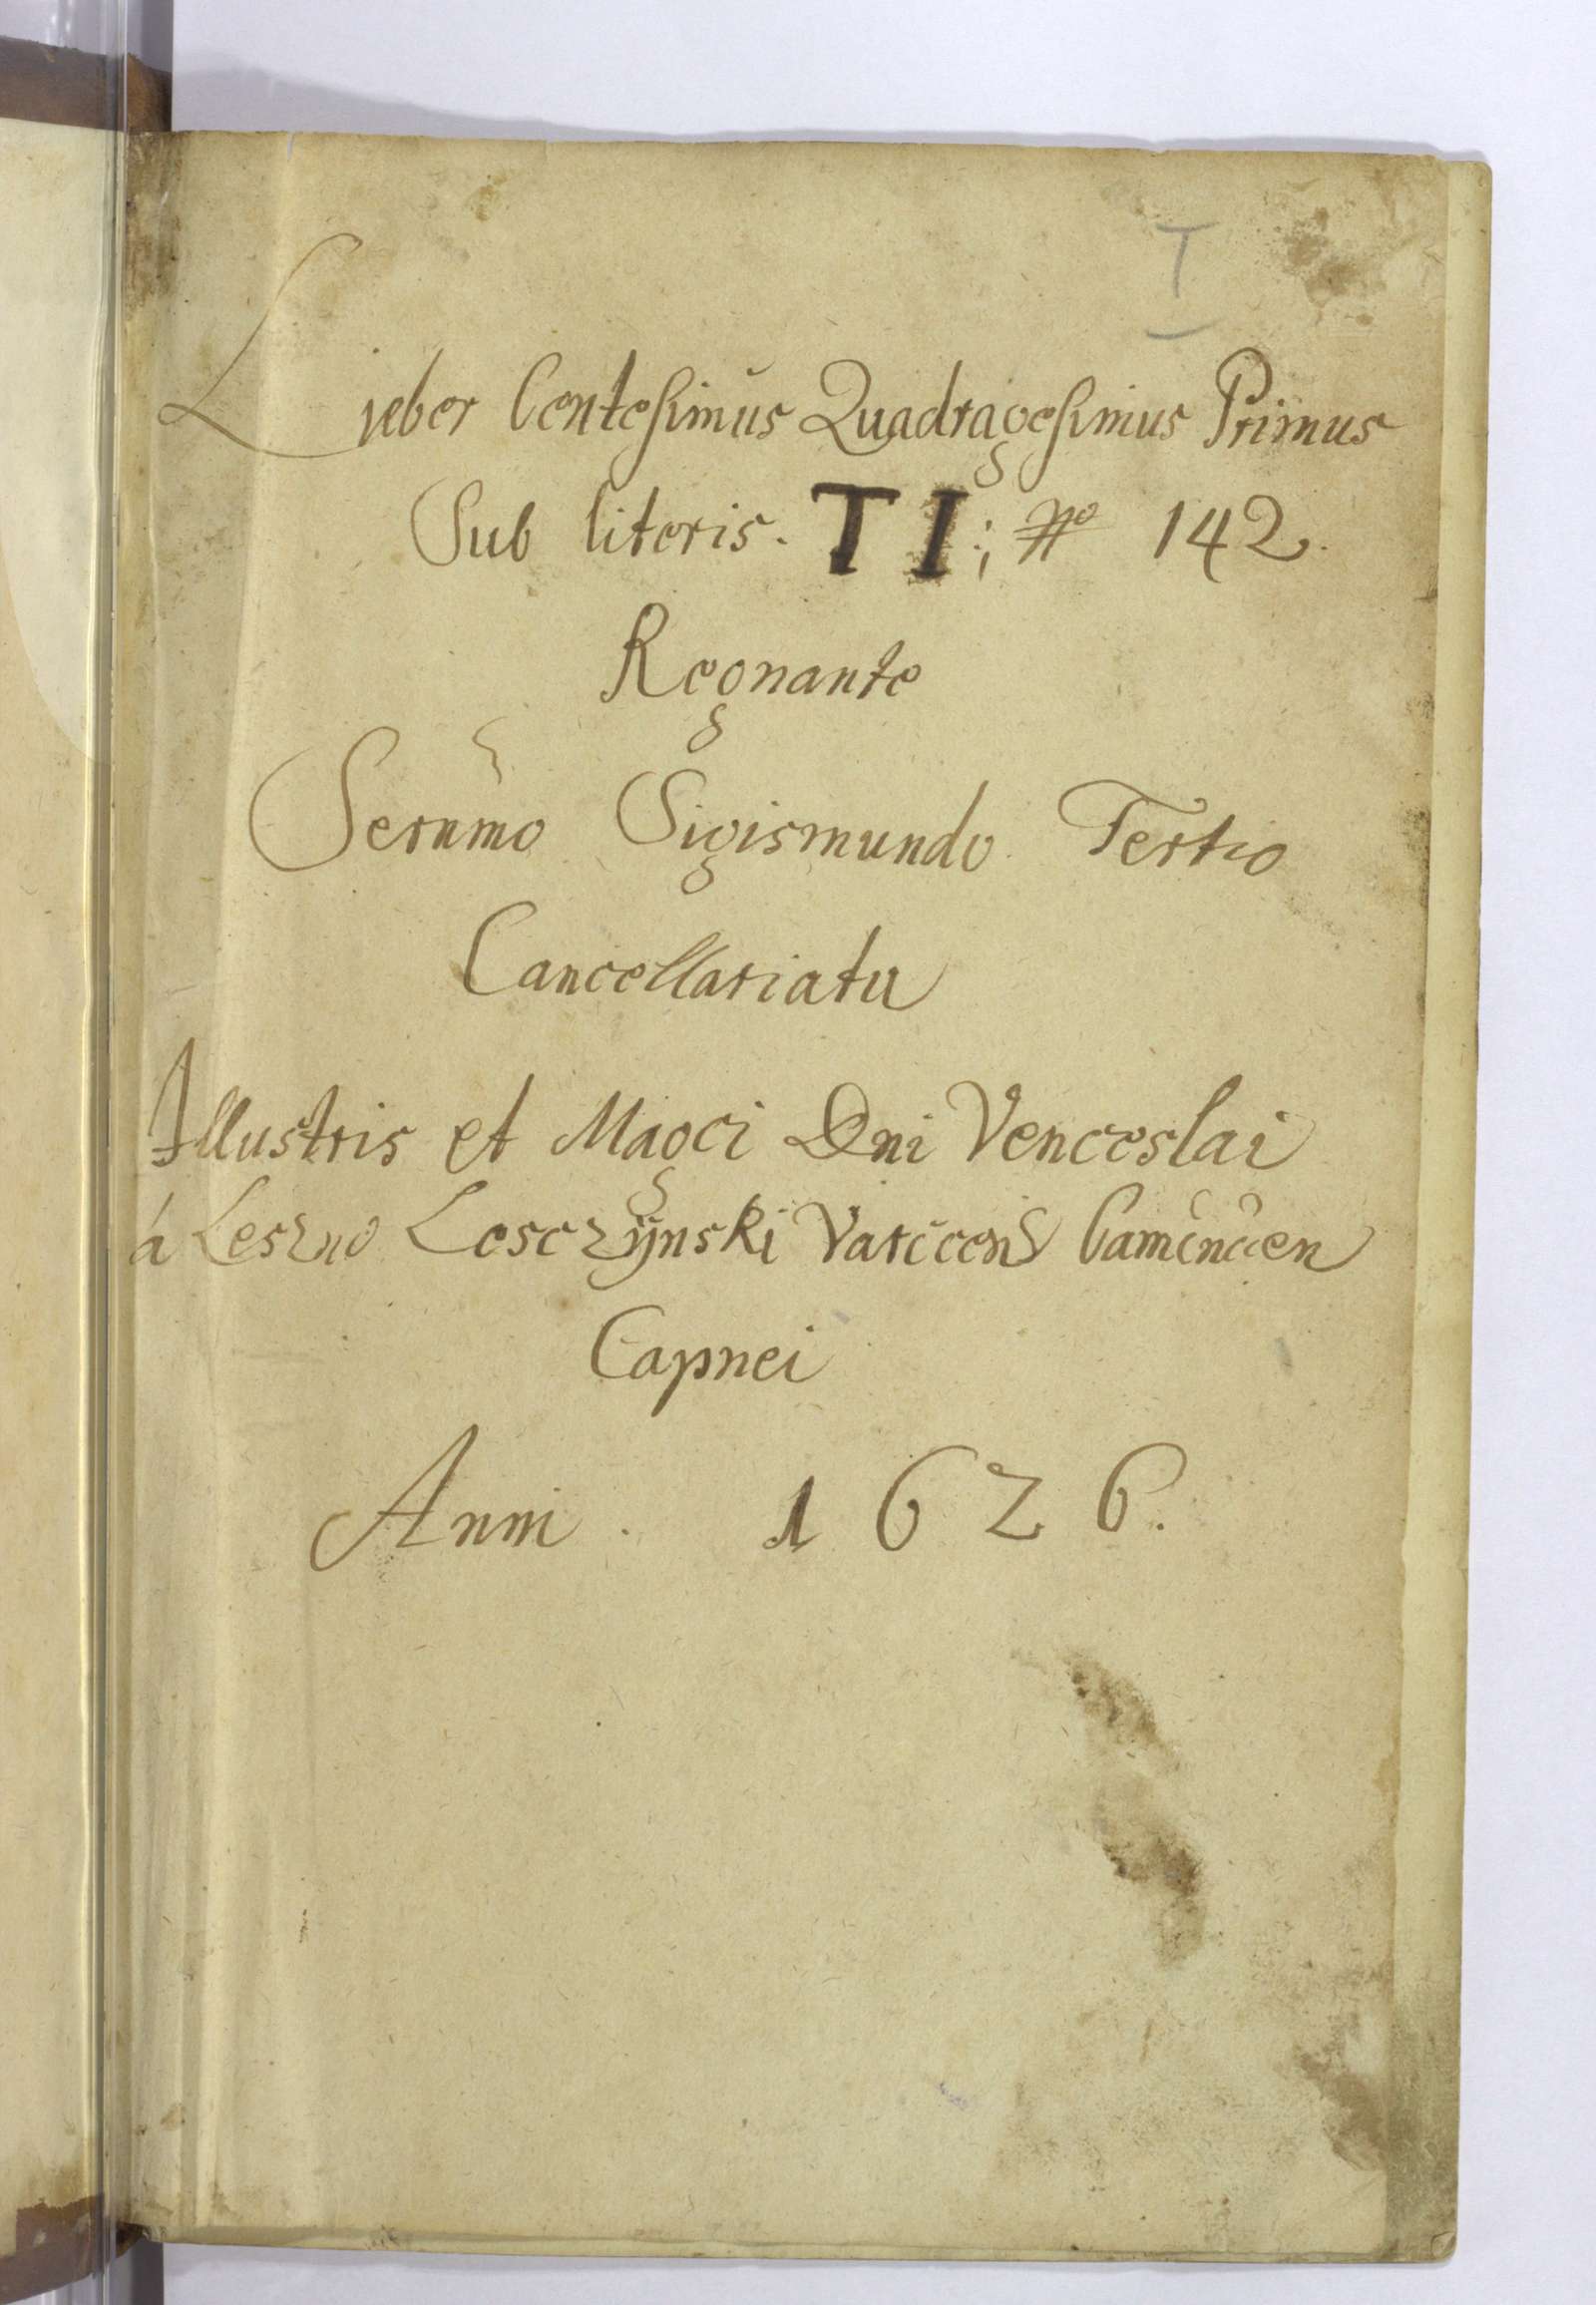 I
Lieber Centesimus Quadragesimus Primus
Sub literis. TI; No 142.
Regnante
Sernmo Sigismundo Tertio
Cancellariatu
Illustris et Magci Dni Venceslai
á Leszno Lesczÿnski Varccen Camencen
Capnei
Anni. 1626.